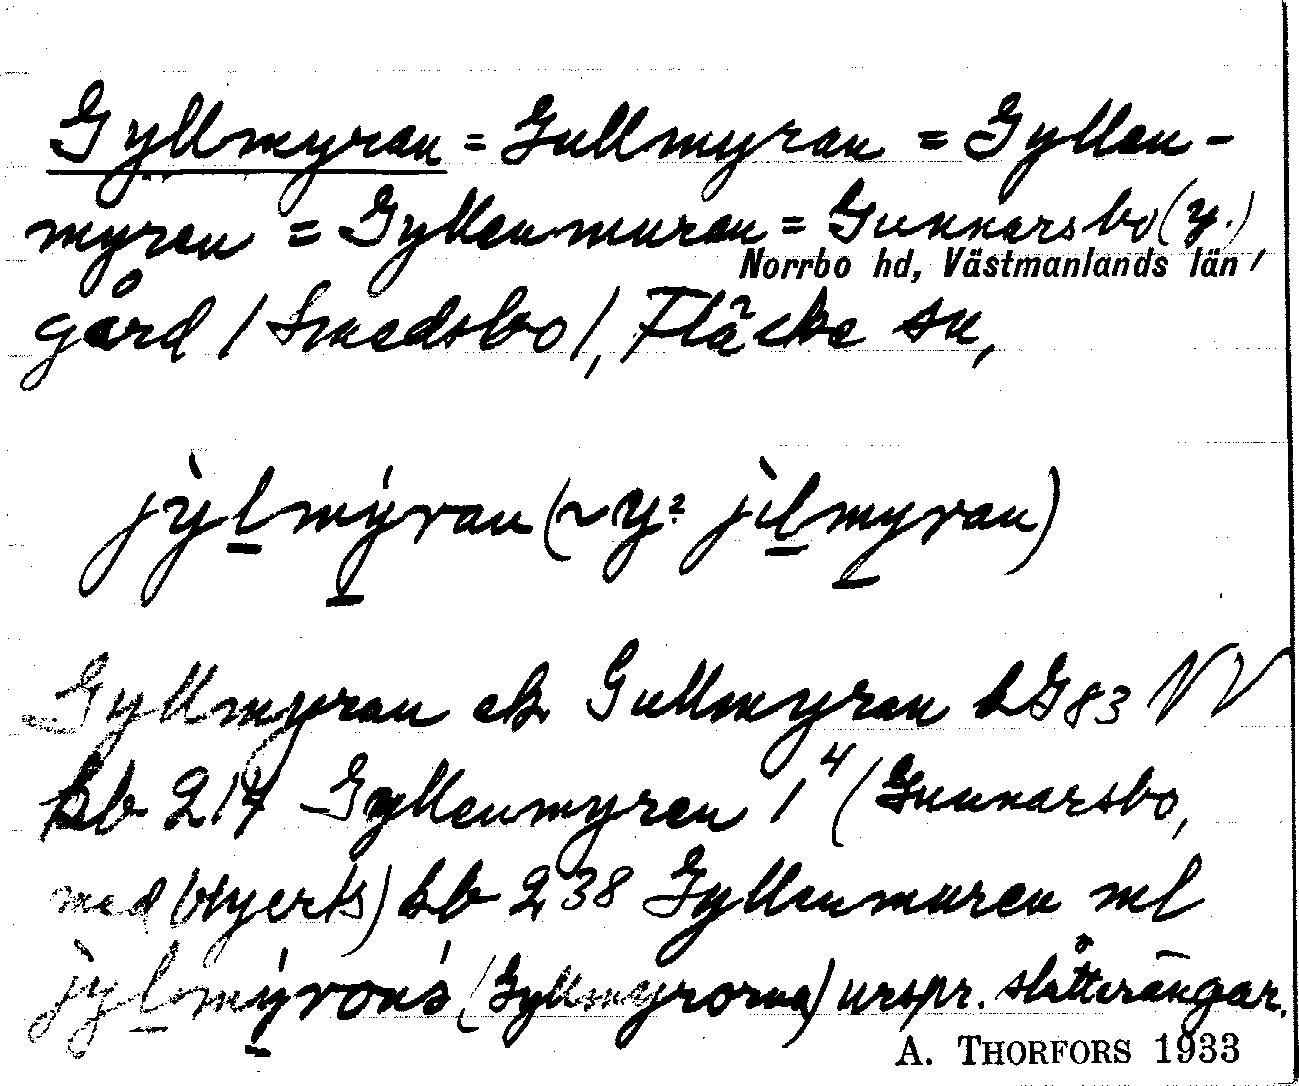 Gyllmyran = Gullmyran = Gyllen-
myren = Gyllenmuren = Gunnarsbo (y.)
Norrbo hd, Västmanlands län
gård / Smedsbo /, Fläcke sn,
jỳlmýran (~ y² jìlmyran)
Gyllmyran ek Gullmyran LG 83 NV
bb 217 Gyllenmyren 1⁴ (Gunnarsbo,
med) bb 238 Gyllenmuren ml
jỳlmýroná (Gyllmyrorna) urspr. slåtterängar.
A. THORFORS 1933